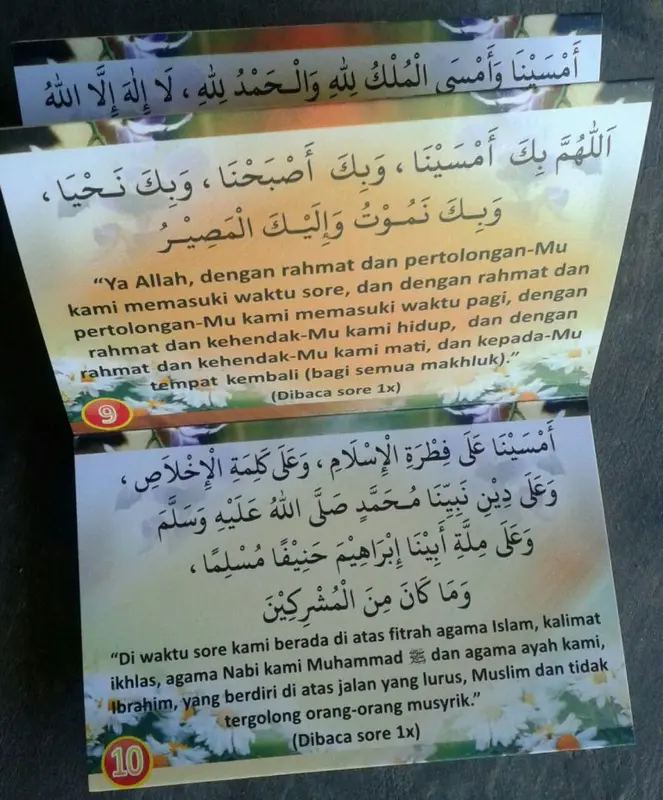 أَمْسَيْنَا وَأَمْسَى الْمُلْكُ لِلّٰهِ وَالْـحَمْدُ لِلّٰهِ ، لَا إِلٰهَ إِلَّا اللّٰهُ
اَللّٰهُمَّ بِكَ أَمْسَيْنَا ، وَبِكَ أَصْبَحْنَا ، وَبِكَ نَـحْيَا ،
وَبِـكَ نَـمُـوْتُ وَإِلَيْـكَ الْـمَصِيْـرُ
“Ya Allah, dengan rahmat dan pertolongan-Mu
kami memasuki waktu sore, dan dengan rahmat dan
pertolongan-Mu kami memasuki waktu pagi, dengan
rahmat dan kehendak-Mu kami hidup, dan dengan
rahmat dan kehendak-Mu kami mati, dan kepada-Mu
tempat kembali (bagi semua makhluk).”
(Dibaca sore 1x)
9
أَمْسَيْنَا عَلَى فِطْرَةِ الْإِسْلَامِ ، وَعَلَى كَلِمَةِ الْإِخْلَاصِ ،
وَعَلَى دِيْنِ نَبِيِّنَا مُـحَمَّدٍ صَلَّى اللّٰهُ عَلَيْهِ وَسَلَّمَ
وَعَلَى مِلَّةِ أَبِيْنَا إِبْرَاهِيْمَ حَنِيْفًا مُسْلِمًا ،
وَمَا كَانَ مِنَ الْمُشْرِكِيْنَ
“Di waktu sore kami berada di atas fitrah agama Islam, kalimat
ikhlas, agama Nabi kami Muhammad ﷺ dan agama ayah kami,
Ibrahim, yang berdiri di atas jalan yang lurus, Muslim dan tidak
tergolong orang-orang musyrik.”
(Dibaca sore 1x)
10